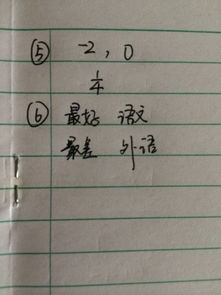 ⑤ -2，0
1/4
⑥ 最好 语文
最差 外语